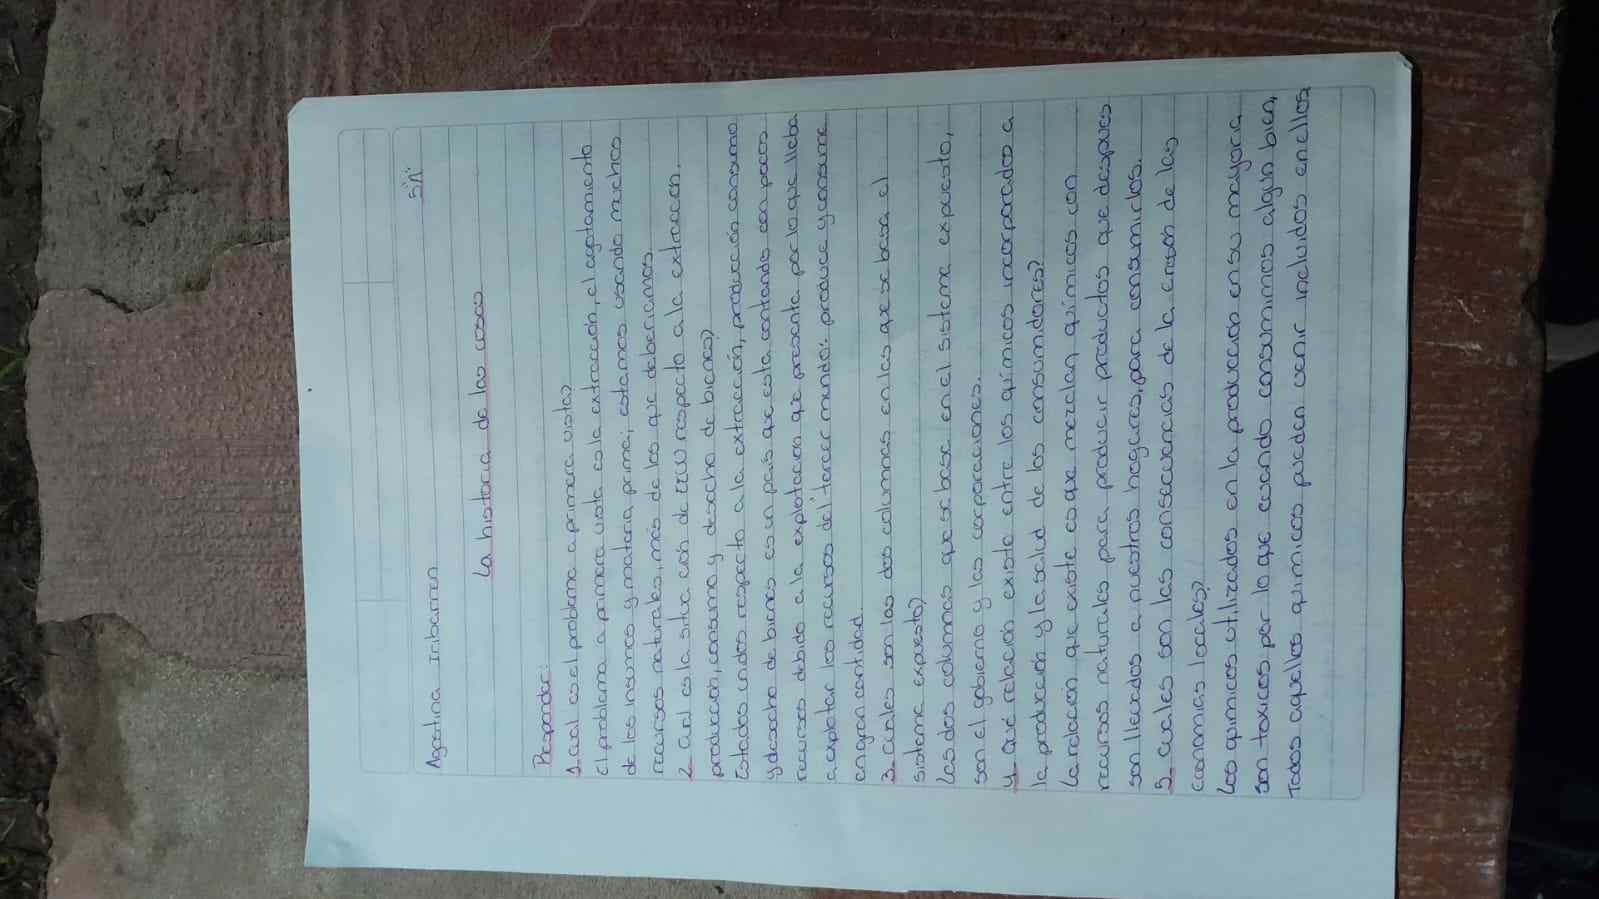 Agostina Iribarren
5"A"
La historia de las cosas
Responder:
1. cual es el problema a primera vista?
El problema a primera vista es la extracción, el agotamiento
de los insumos y materia prima, estamos usando muchos
recursos naturales, más de los que deberiamos.
2- cual es la situación de EEUU respecto a la extracción,
producción, consumo y desecho de bienes?
Estados unidos respecto a la extracción, producción consumo
y desecho de bienes es un país que esta contando con pocos
recursos debido a la explotación que presenta por lo que lleba
a explotar los recursos del "tercer mundo: produce y consume
en gran cantidad.
3- cuales son las dos columnas en las que se basa el
sistema expuesto?
Las dos columnas que se basa en el sistema expuesto,
son el gobierno y las corporaciones.
4- Qué relación existe entre los químicos incorporados a
la producción y la salud de los consumidores?
La relación que existe es que mezclan químicos con
recursos naturales para producir productos que después
son llevados a nuestros hogares, para consumirlos.
5- cuales son las consecuencias de la erosión de las
economías locales?
Los químicos utilizados en la producción en su mayoria
son toxicos por lo que cuando consumimos algún bien,
Todos aquellos químicos pueden venir incluidos en ellos